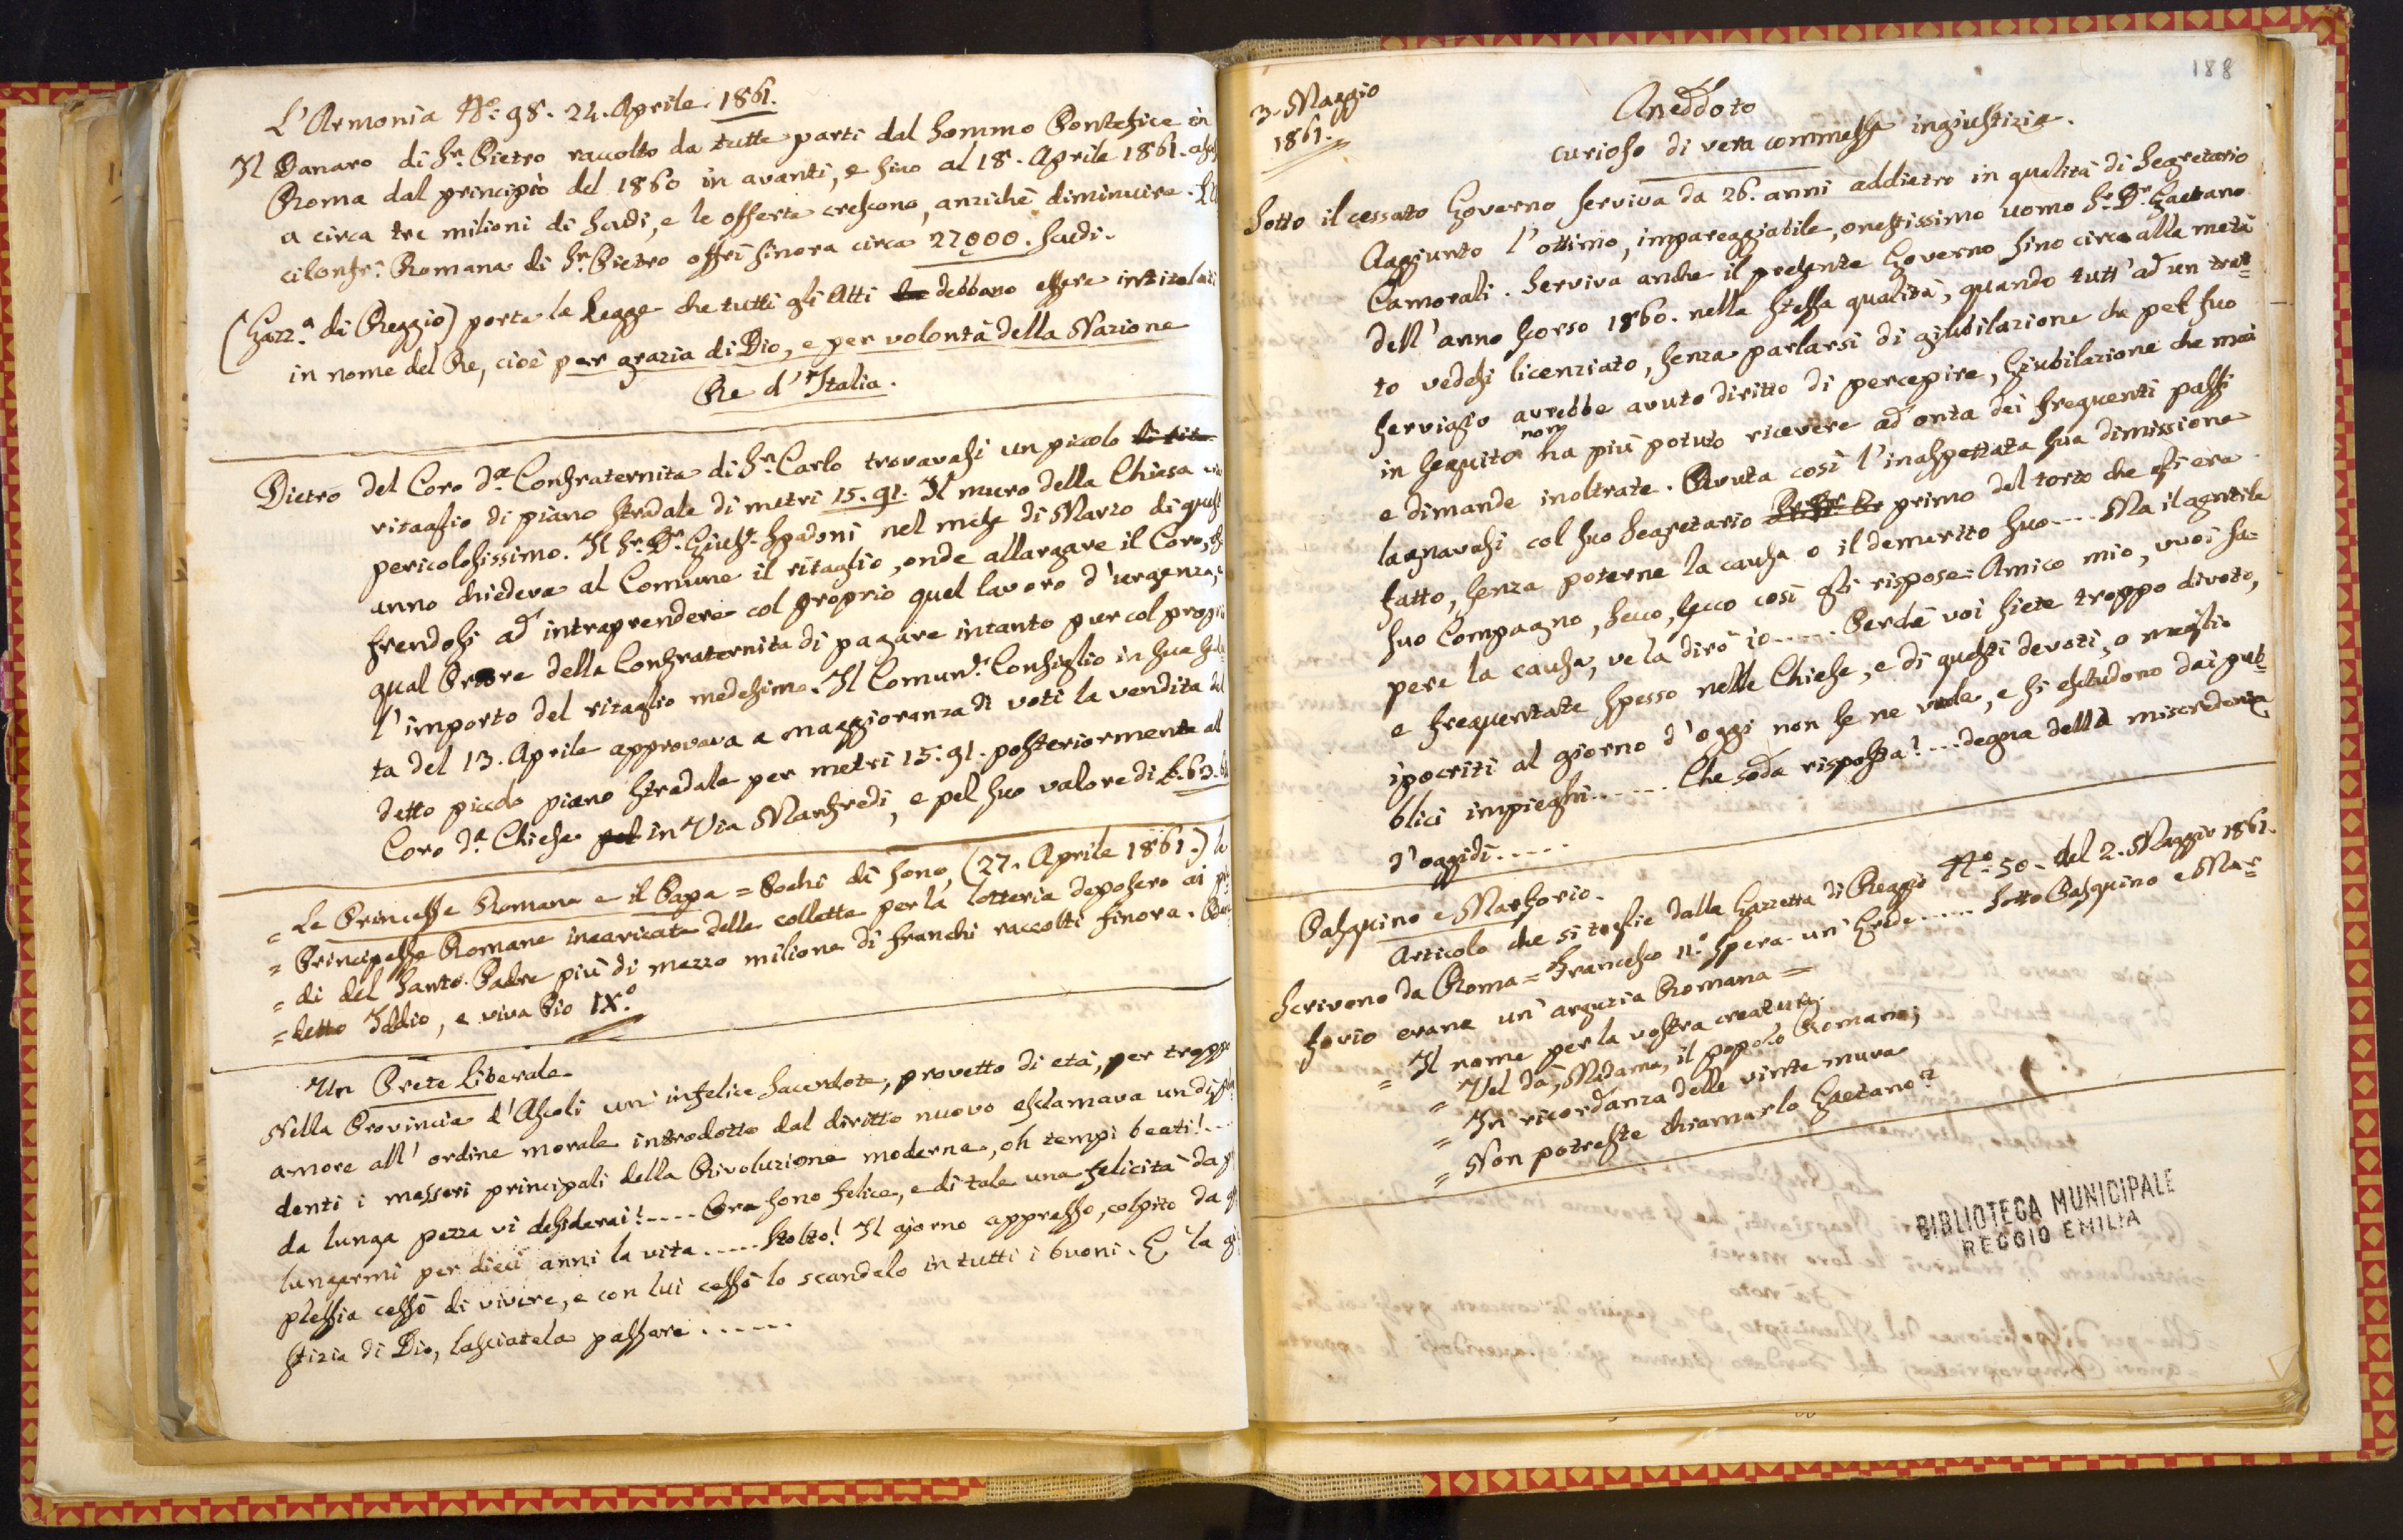 L'Armonia N°: 98. 24. Aprile 1861.
Il Danaro di Sn. Pietro raccolto da tutte parti dal Sommo Pontefice in
Roma dal principio del 1860 in avanti, e sino al 18. Aprile 1861.
a circa tre milioni di Scudi, e le offerte crescono, anzichè diminuire.
Romana di Sn. Pietro offrì finora circa 27000. Scudi.
(Gazz.a di Reggio) porta la Legge che tutti gli Atti debbano essere intitolati
in nome del Re, cioè per grazia di Dio, e per volontà della Nazione
Re d'Italia.
Dietro del Coro d.a Confraternita di Sn. Carlo trovavasi un piccolo
ritaglio di piano stradale di metri 15.91. Il muro della Chiesa
pericolosissimo. Il Sr. Dr. Gius.e Spadoni nel mese di Marzo di quest
anno chiedeva al Comune il ritaglio, onde allargare il Coro,
frendosi ad intraprendere col proprio quel lavoro d'urgenza,
qual Priore della Confraternita di pagare intanto pur col propri
l'importo del ritaglio medesimo. Il Comun.e Consiglio in sua
ta del 13. Aprile approvava a maggioranza di voti la vendita del
detto piccolo piano stradale per metri 15.91. posteriormente al
Coro d.a Chiesa in Via Manfredi, e pel suo valore di £.63.
= Le Princesse Romane e il Papa = Pochi dì sono, (27. Aprile 1861.) le
= Principesse Romane incaricate delle collette per la lotteria deposero ai pie
= di del Santo Padre più di mezzo milione di franchi raccolti finora.
= detto Iddio, e viva Pio IX.°
Un Prete Liberale
Nella Provincia d'Ascoli un' infelice Sacerdote, provetto di età, per troppo
amore all' ordine morale introdotto dal diritto nuovo esclamava un dì
denti i messeri principali della Rivoluzione moderna, oh tempi beati!...
da lunga pezza vi desiderai!..... Ora sono felice, e di tale una felicità da
lungarmi per dieci anni la vita..... Stolto! Il giorno appresso, colpito da
plessia cessò di vivere, e con lui cessò lo scandalo in tutti i buoni. È la giu
stizia di Dio, lasciatela passare......
188
3. Maggio
1861.
Aneddoto
curioso di vera commessa ingiustizia.
Sotto il cessato Governo serviva da 26. anni addietro in qualità di Segretario
Aggiunto l'ottimo, impareggiabile, onestissimo uomo Sr. Dr. Gaetano
Camorali. Serviva anche il presente Governo sino circa alla metà
dell'anno scorso 1860. nella stessa qualità, quando tutt'ad un trat=
to vedesi licenziato, senza parlarsi di giubilazione che pel suo
servigio avrebbe avuto diritto di percepire, Giubilazione che mai
in seguito non ha più potuto ricevere ad onta dei frequenti passi
e dimande inoltrate. Avuta così l'inaspettata sua dimissione
lagnavasi col suo Segretario primo del torto che gli era
fatto, senza poterne la causa o il demerito suo.... Ma il gentile
suo Compagno, secco, secco così gli rispose: Amico mio, vuoi sa=
pere la causa, ve la dirò io..... Perchè voi siete troppo divoto,
e frequentate spesso nelle Chiese, e di questi devoti, o meglio
ipocriti al giorno d'oggi non se ne vuole, e si escludono dai pub=
blici impieghi...... Che soda risposta!.... degna della miscredenza
d'oggidì.....
Pasquino e Marforio.
Articolo che si toglie dalla Gazzetta di Reggio N°: 50. del 2. Maggio 1861.
Scrivono da Roma = Francesco II.° spera un' Erede..... Sotto Pasquino e Mar=
forio erane un' arguzia Romana =
= Il nome per la vostra creatura
= Vel dà, Madama, il popolo Romano;
= In ricordanza delle vinte mura
= Non potreste chiamarlo Gaetano?
BIBLIOTECA MUNICIPALE
REGGIO EMILIA